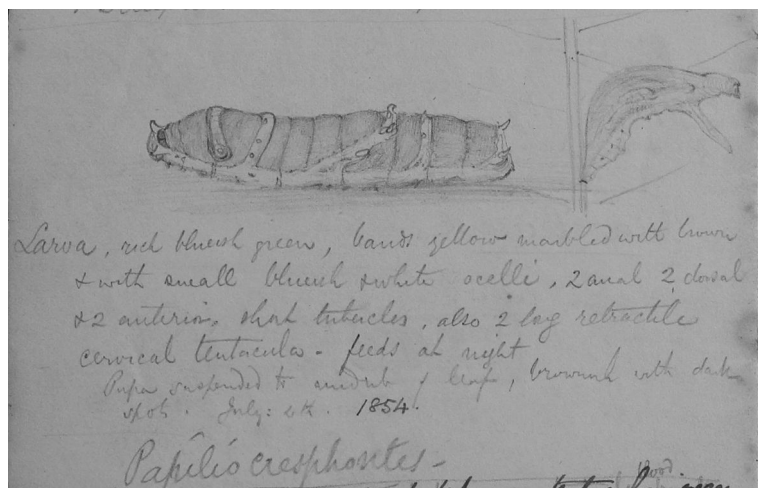 Larva, rich blueish green, bands yellow marbled with brown
& with small blueish & white ocelli, 2 anal 2 dorsal
& 2 anterior, short tubercles, also 2 long retractile
cervical tentacula - feeds at night
Pupa suspended to midrib of leaf, brownish with dark
spots. July: 4th. 1854.
Papilio cresphontes -